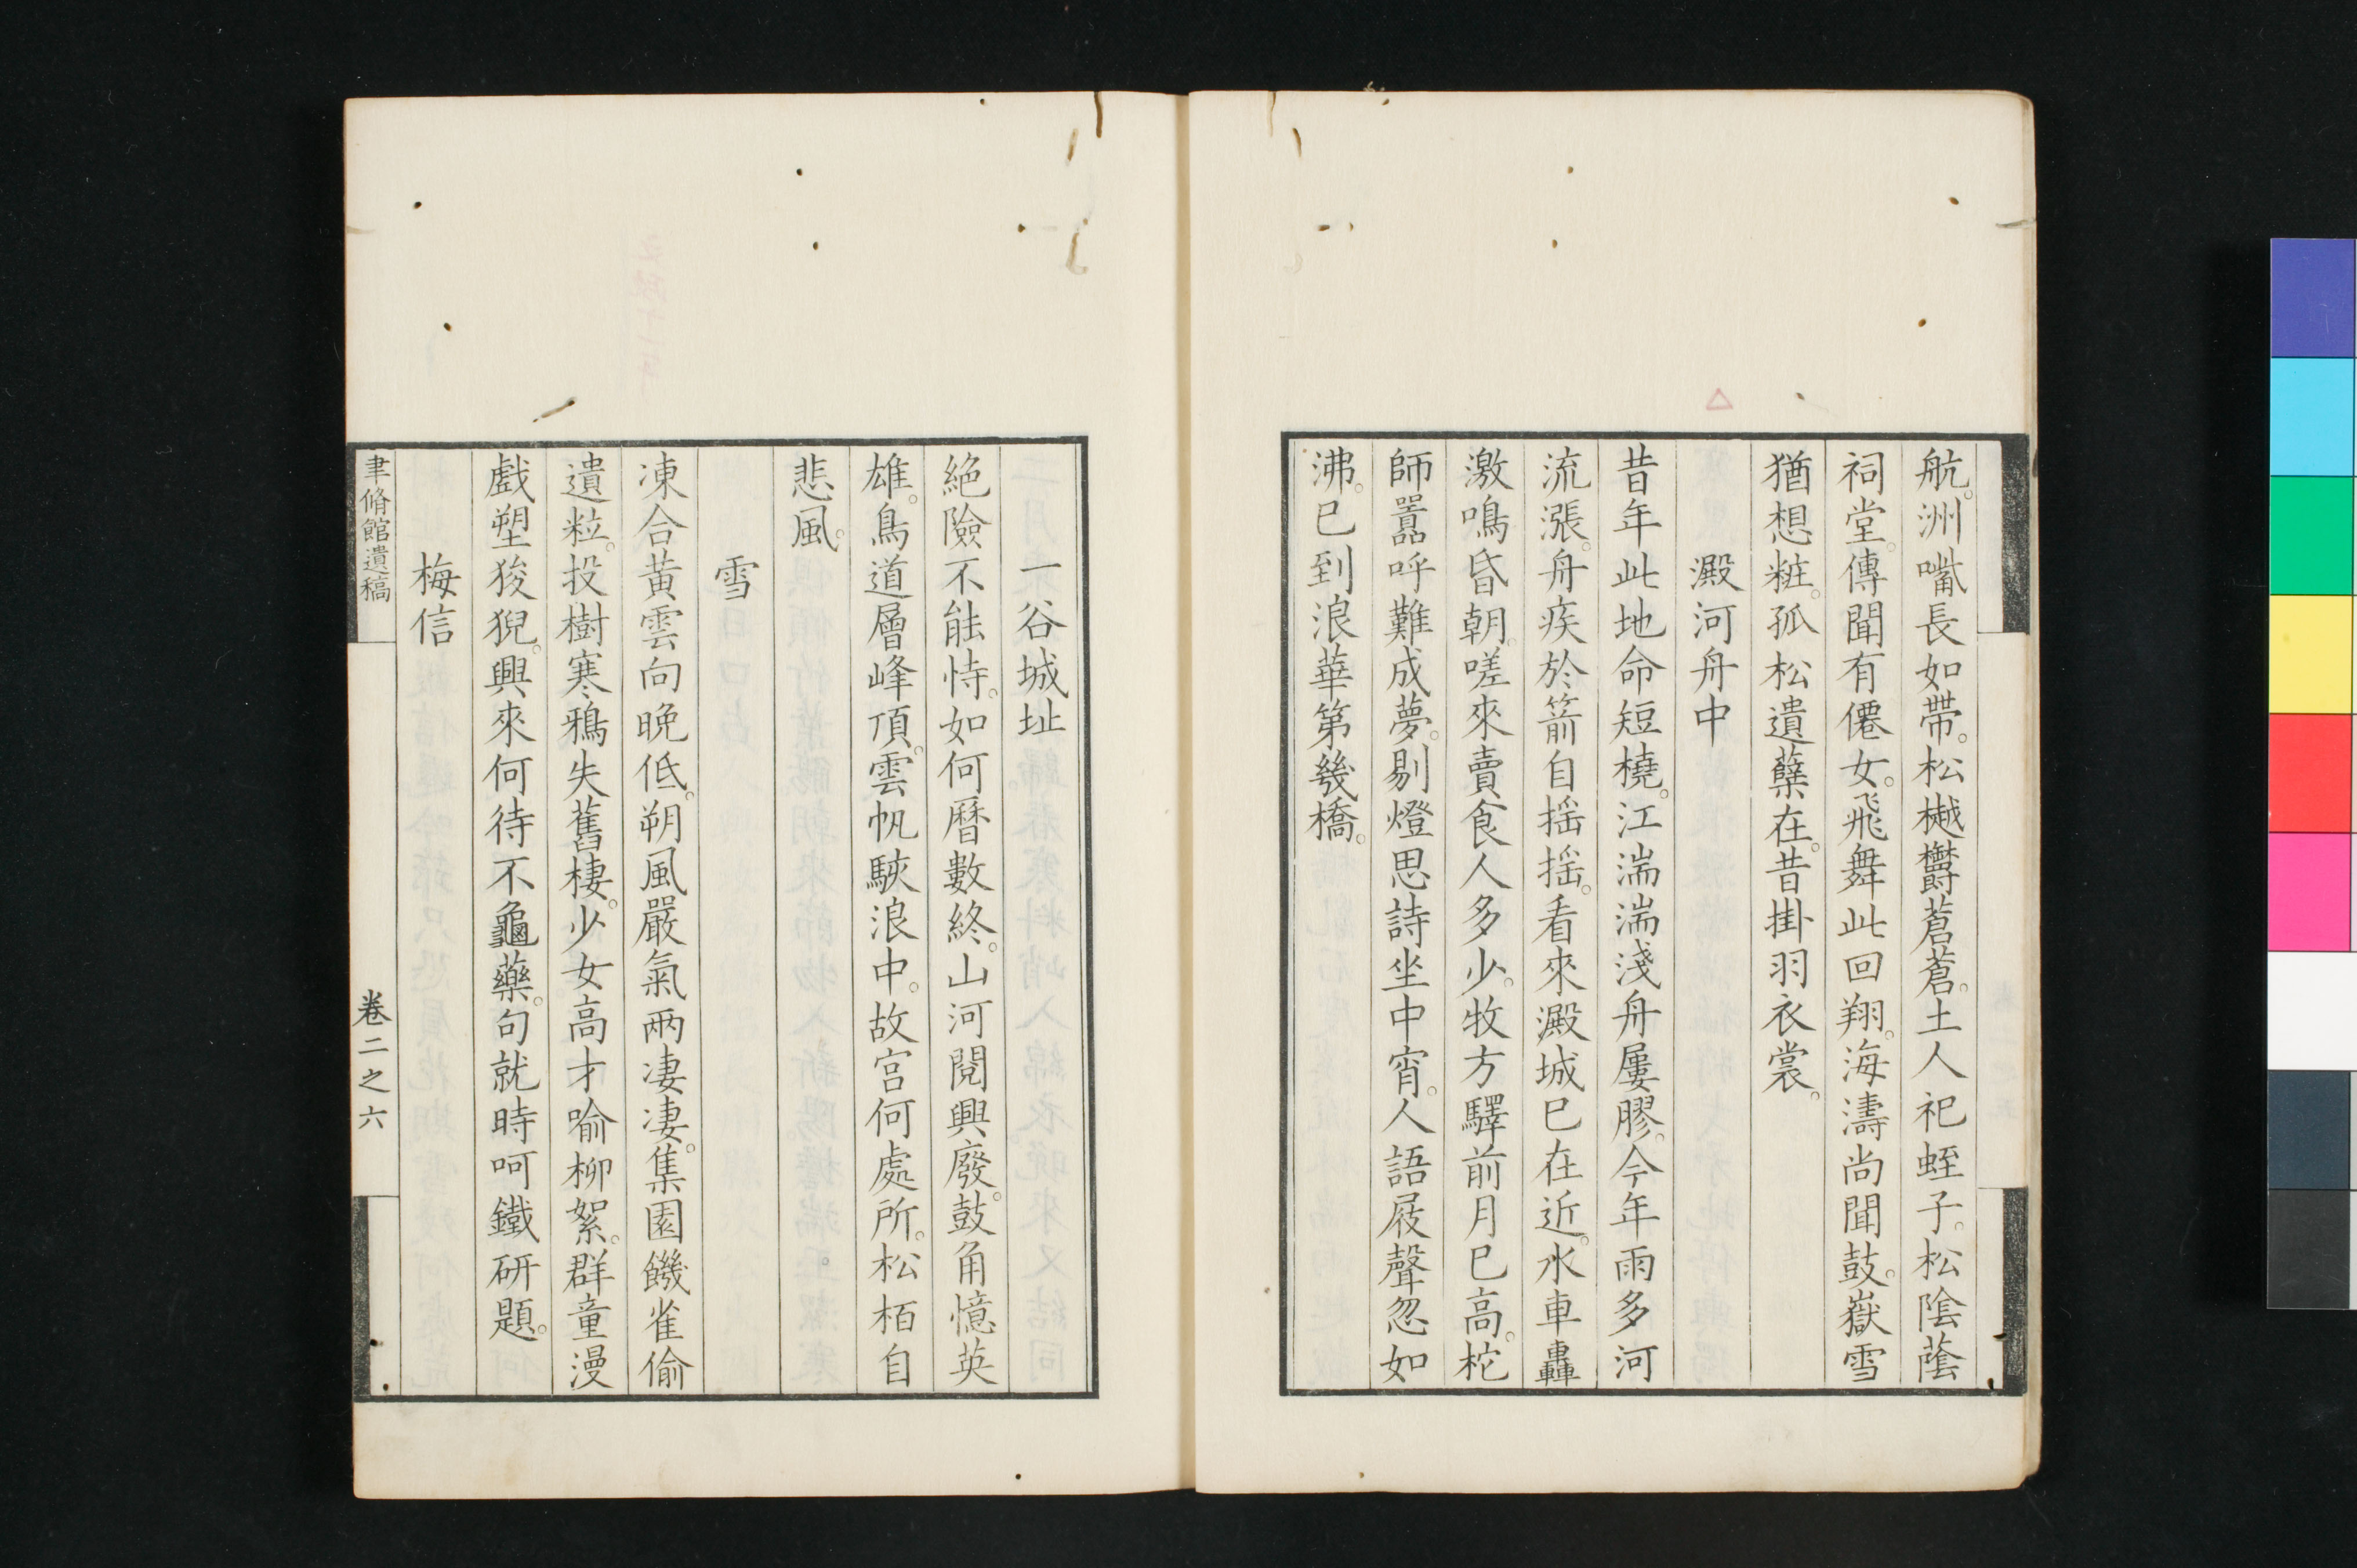 航。洲嘴長如帶。松樾欝蒼蒼。土人祀蛭子。松陰蔭
祠堂。傳聞有僊女。飛舞此回翔。海濤尚聞鼓。嶽雪
猶想粧。孤松遺蘖在。昔掛羽衣裳。
澱河舟中
昔年此地命短橈。江湍湍淺舟屢膠。今年雨多河
流漲。舟疾於箭自揺揺。看來澱城已在近。水車轟
激鳴昏朝。嗟來賣食人多少。牧方驛前月已高。柁
師嚣呼難成夢。剔燈思詩坐中宵。人語屐聲忽如
沸。已到浪華第幾橋。
一谷城址
絕險不能恃。如何曆數終。山河閱興廢。鼓角憶英
雄。鳥道層峰頂。雲帆駛浪中。故宮何處所。松栢自
悲風。
雪
凍合黃雲向晚低。朔風嚴氣兩凄凄。集園饑雀偷
遺粒。投樹寒鴉失舊棲。少女高才喻柳絮。群童漫
戲塑狻猊。興來何待不龜藥。句就時呵鐵研題。
梅信
聿脩館遺稿
卷二之六